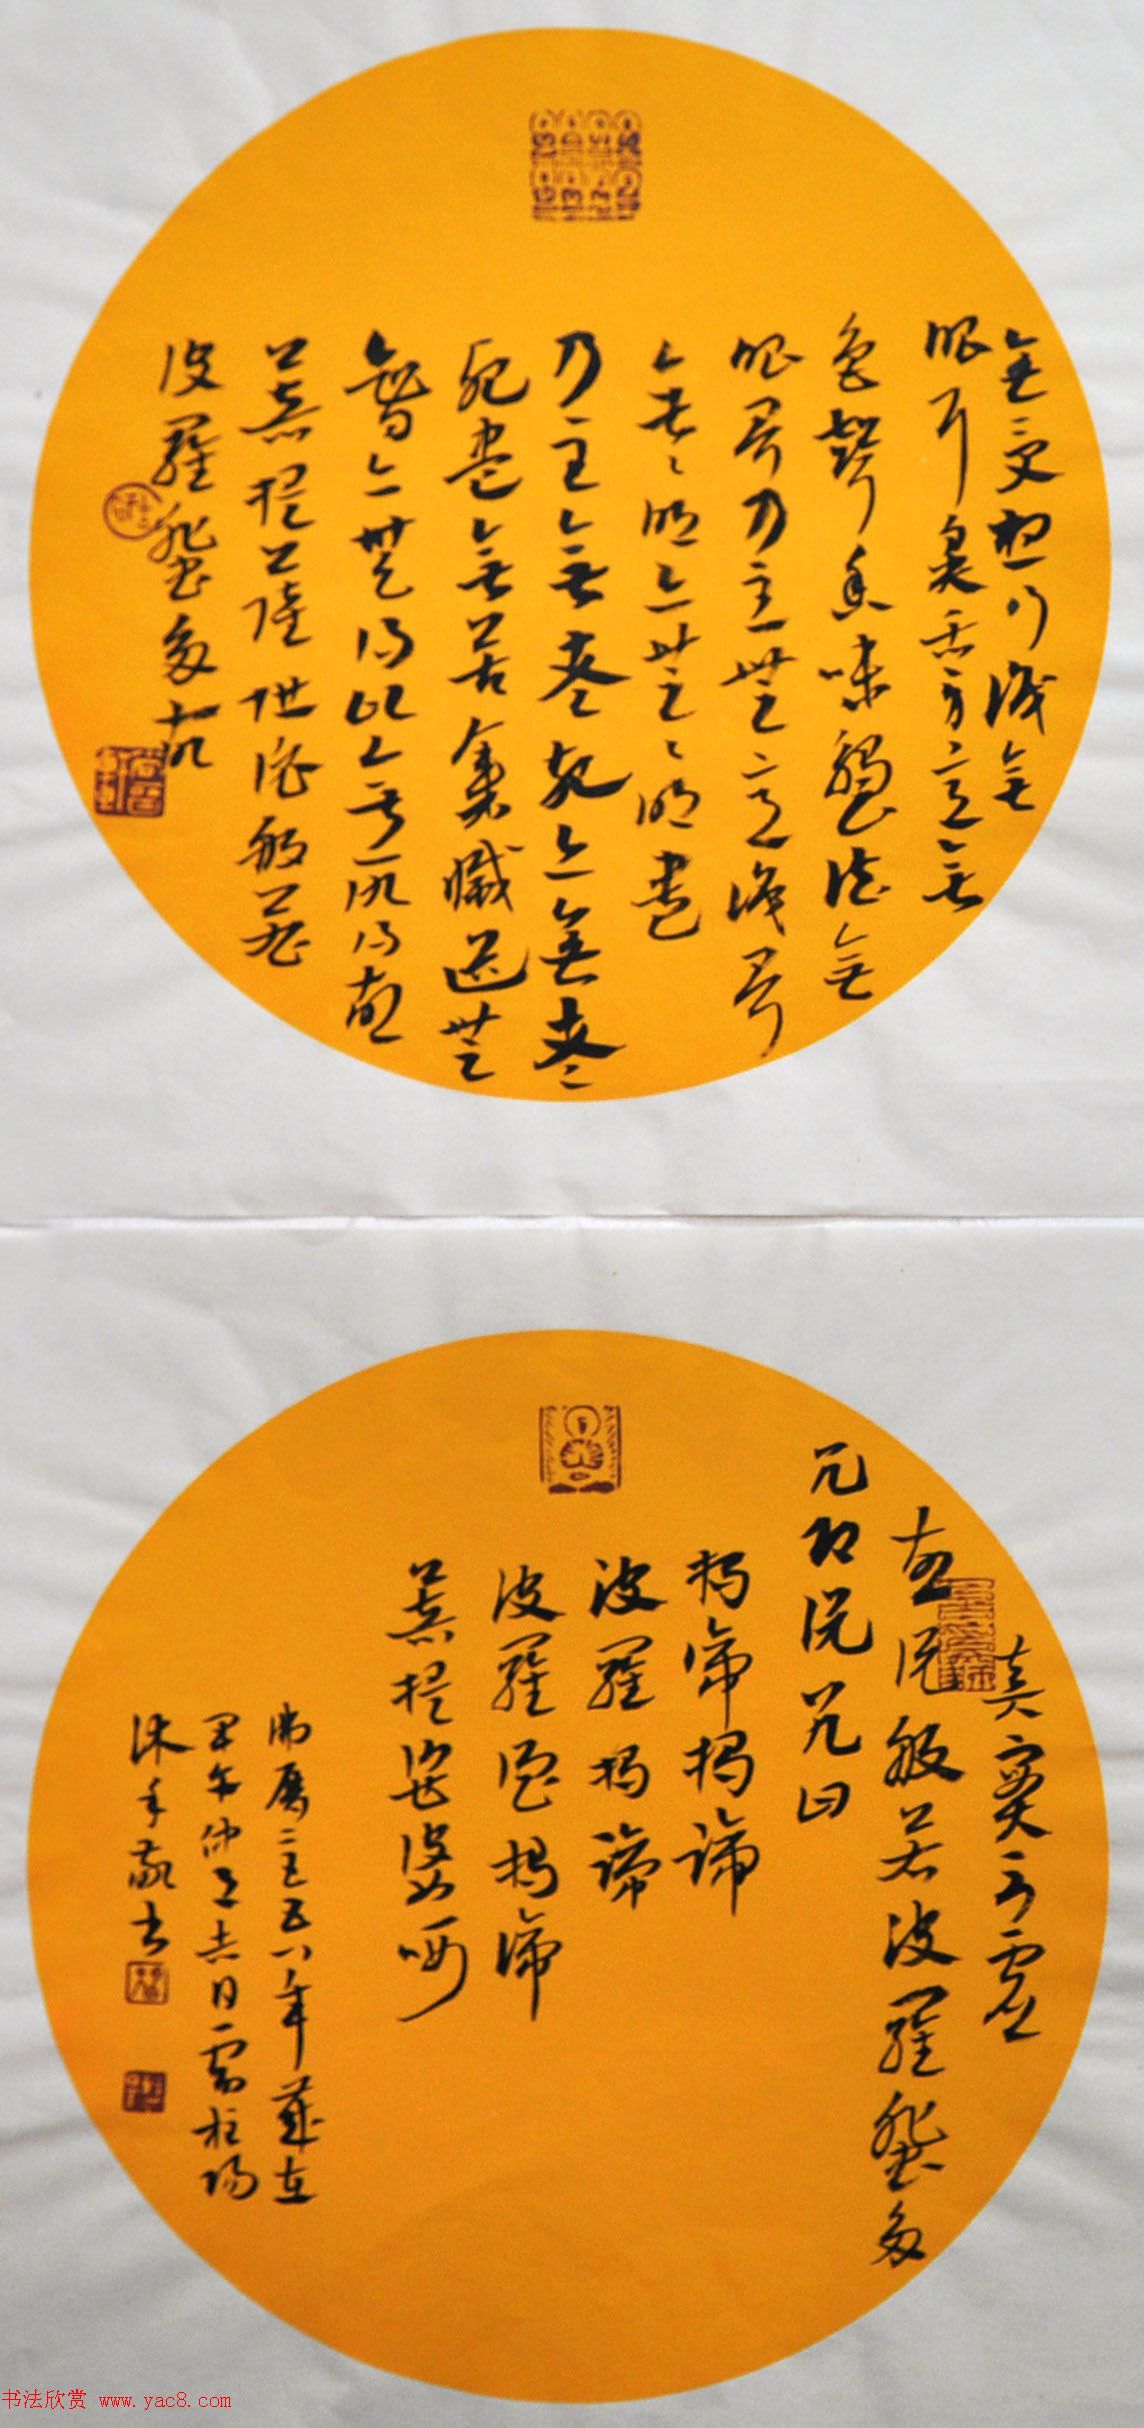 無受想行識無
眼耳鼻舌身意無
色聲香味觸法無
眼界乃至無意識界
無無明亦無無明盡
乃至無老死亦無老
死盡無苦集滅道無
智亦無得以無所得故
菩提薩埵依般若
波羅蜜多故
真實不虛
故說般若波羅蜜多
咒即說咒曰
揭諦揭諦
波羅揭諦
波羅僧揭諦
菩提薩婆訶
佛曆二五五八年歲在
甲午仲夏吉日雷柱揚
沐手敬書
书法欣赏 www.yac8.com